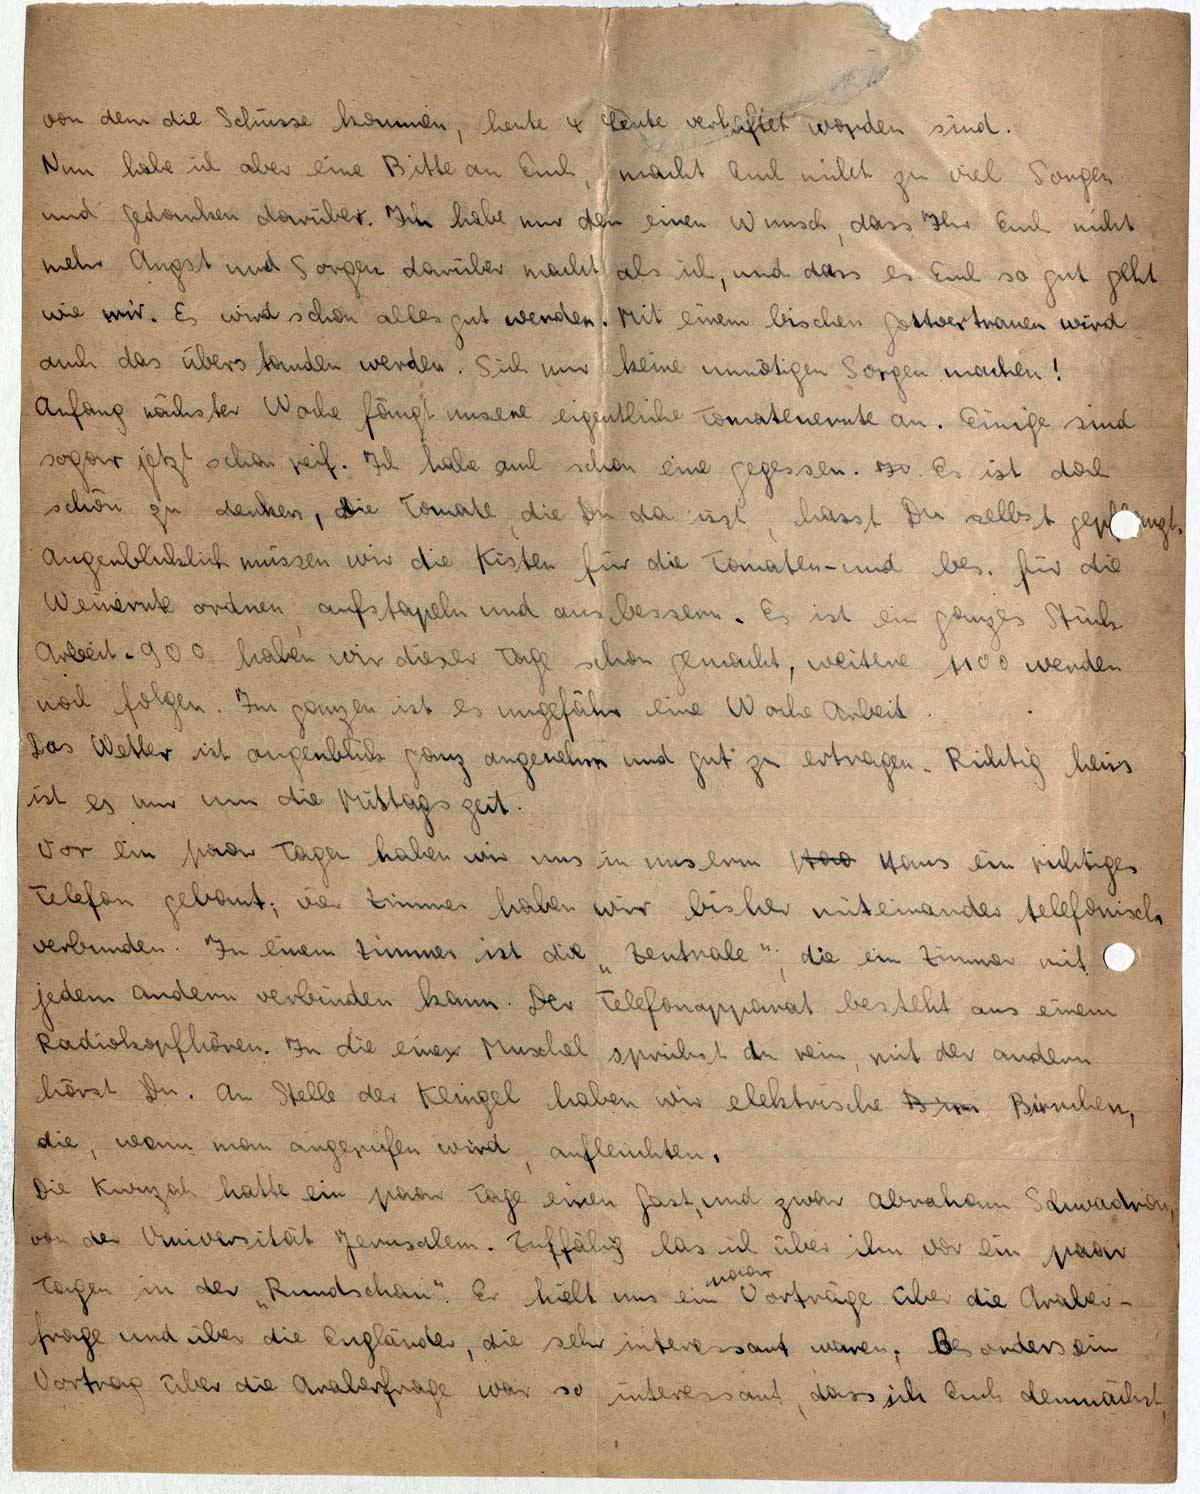 von dem die Schüsse kommen, heute 4 Leute verhaftet worden sind.
Nun habe ich aber eine Bitte an Euch, macht Euch nicht zu viel Sorgen
und Gedanken darüber. Ich habe nur den einen Wunsch, dass Ihr Euch nicht
mehr Angst und Sorgen darüber macht als ich, und dass es Euch so gut geht
wie mir. Es wird schon alles gut werden. Mit einem bischen Gottvertrauen wird
auch das überstanden werden. Sich nur keine unnötigen Sorgen machen!
Anfang nächster Woche fängt unsere eigentliche Tomatenernte an. Einige sind
sogar jetzt schon reif. Ich habe auch schon eine gegessen. Es ist doch
schön zu denken, die Tomate, die Du da isst, hasst Du selbst gepflanzt.
Augenblicklich müssen wir die Kisten für die Tomaten- und bes. für die
Weinernte ordnen, aufstapeln und ausbessern. Es ist ein ganzes Stück
Arbeit. 900 haben wir dieser Tage schon gemacht, weitere 1100 werden
noch folgen. Im ganzen ist es ungefähr eine Woche Arbeit.
Das Wetter ist augenblick ganz angenehm und gut zu ertragen. Richtig heiss
ist es nur um die Mittagszeit.
Vor ein paar Tagen haben wir uns in unserm Haus ein richtiges
Telefon gebaut; vier Zimmer haben wir bisher miteinander telefonisch
verbunden. In einem Zimmer ist die „Zentrale“, die ein Zimmer mit
jedem andern verbinden kann. Der Telefonapparat besteht aus einem
Radiokopfhörer. In die eine Muschel sprichst du rein, mit der andern
hörst Du. An Stelle der Klingel haben wir elektrische Birnchen,
die, wenn man angerufen wird, aufleuchten.
Die Kwuzah hatte ein paar Tage einen Gast, und zwar Abraham Schwadron,
von der Universität Jerusalem. Zuffälig las ich über ihn vor ein paar
Tagen in der „Rundschau“. Er hielt uns ein paar Vorträge über die Araber-
frage und über die Engländer, die sehr interessant waren. Besonders ein
Vortrag über die Araberfrage war so interessant, dass ich Euch demnächst,